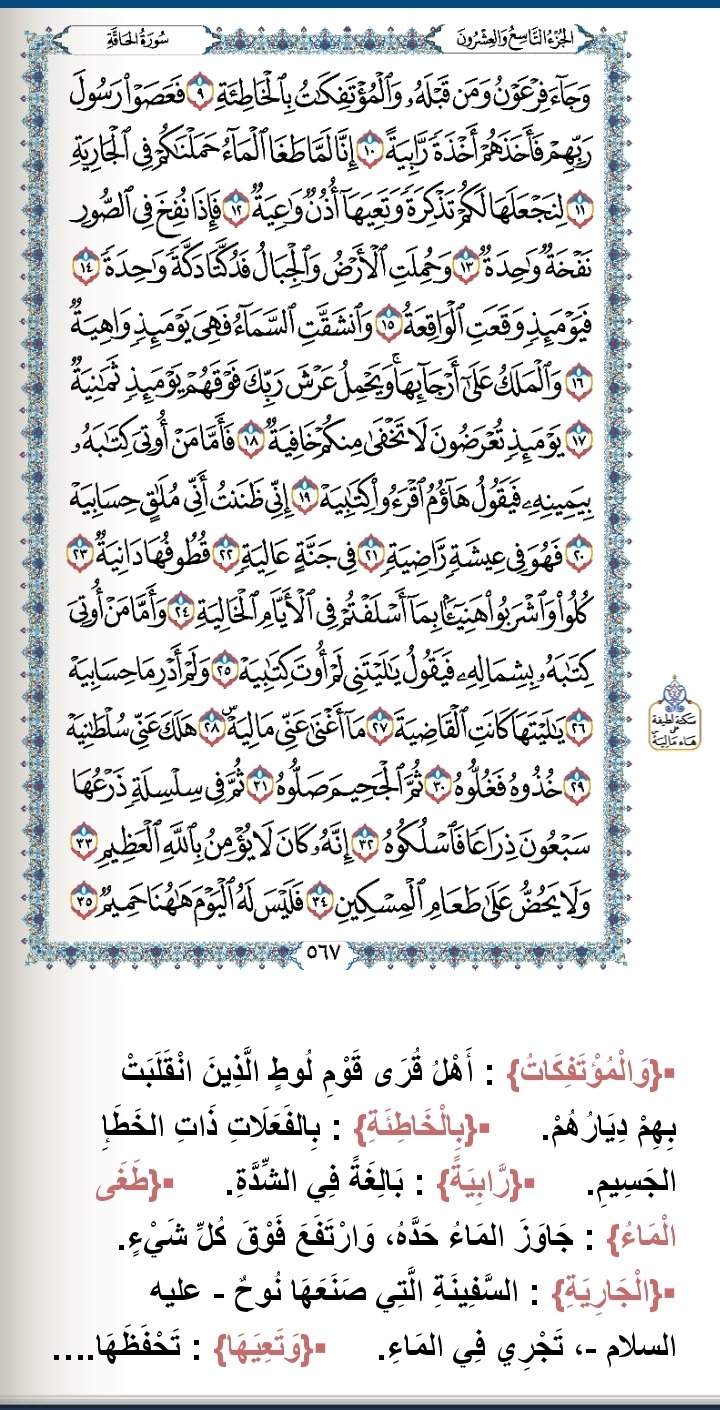 الجزء التاسع والعشرون
سورة الحاقة
وَجَآءَ فِرْعَوْنُ وَمَن قَبْلَهُۥ وَٱلْمُؤْتَفِكَٰتُ بِٱلْخَاطِئَةِ ٩ فَعَصَوْا۟ رَسُولَ
رَبِّهِمْ فَأَخَذَهُمْ أَخْذَةً رَّابِيَةً ١٠ إِنَّا لَمَّا طَغَا ٱلْمَآءُ حَمَلْنَٰكُمْ فِى ٱلْجَارِيَةِ
١١ لِنَجْعَلَهَا لَكُمْ تَذْكِرَةً وَتَعِيَهَآ أُذُنٌ وَٰعِيَةٌ ١٢ فَإِذَا نُفِخَ فِى ٱلصُّورِ
نَفْخَةٌ وَٰحِدَةٌ ١٣ وَحُمِلَتِ ٱلْأَرْضُ وَٱلْجِبَالُ فَدُكَّتَا دَكَّةً وَٰحِدَةً ١٤
فَيَوْمَئِذٍ وَقَعَتِ ٱلْوَاقِعَةُ ١٥ وَٱنشَقَّتِ ٱلسَّمَآءُ فَهِىَ يَوْمَئِذٍ وَاهِيَةٌ
١٦ وَٱلْمَلَكُ عَلَىٰٓ أَرْجَآئِهَا ۚ وَيَحْمِلُ عَرْشَ رَبِّكَ فَوْقَهُمْ يَوْمَئِذٍ ثَمَٰنِيَةٌ
١٧ يَوْمَئِذٍ تُعْرَضُونَ لَا تَخْفَىٰ مِنكُمْ خَافِيَةٌ ١٨ فَأَمَّا مَنْ أُوتِىَ كِتَٰبَهُۥ
بِيَمِينِهِۦ فَيَقُولُ هَآؤُمُ ٱقْرَءُوا۟ كِتَٰبِيَهْ ١٩ إِنِّى ظَنَنتُ أَنِّى مُلَٰقٍ حِسَابِيَهْ
٢٠ فَهُوَ فِى عِيشَةٍ رَّاضِيَةٍ ٢١ فِى جَنَّةٍ عَالِيَةٍ ٢٢ قُطُوفُهَا دَانِيَةٌ ٢٣
كُلُوا۟ وَٱشْرَبُوا۟ هَنِيٓـًٔۢا بِمَآ أَسْلَفْتُمْ فِى ٱلْأَيَّامِ ٱلْخَالِيَةِ ٢٤ وَأَمَّا مَنْ أُوتِىَ
كِتَٰبَهُۥ بِشِمَالِهِۦ فَيَقُولُ يَٰلَيْتَنِى لَمْ أُوتَ كِتَٰبِيَهْ ٢٥ وَلَمْ أَدْرِ مَا حِسَابِيَهْ
٢٦ يَٰلَيْتَهَا كَانَتِ ٱلْقَاضِيَةَ ٢٧ مَآ أَغْنَىٰ عَنِّى مَالِيَهْ ۜ ٢٨ هَلَكَ عَنِّى سُلْطَٰنِيَهْ
٢٩ خُذُوهُ فَغُلُّوهُ ٣٠ ثُمَّ ٱلْجَحِيمَ صَلُّوهُ ٣١ ثُمَّ فِى سِلْسِلَةٍ ذَرْعُهَا
سَبْعُونَ ذِرَاعًا فَٱسْلُكُوهُ ٣٢ إِنَّهُۥ كَانَ لَا يُؤْمِنُ بِٱللَّهِ ٱلْعَظِيمِ ٣٣
وَلَا يَحُضُّ عَلَىٰ طَعَامِ ٱلْمِسْكِينِ ٣٤ فَلَيْسَ لَهُ ٱلْيَوْمَ هَٰهُنَا حَمِيمٌ ٣٥
سكتة لطيفة
على
هاء مَالِيَهْ
٥٦٧
▪{وَالْمُؤْتَفِكَاتُ} : أَهْلُ قُرَى قَوْمِ لُوطٍ الَّذِينَ انْقَلَبَتْ
بِهِمْ دِيَارُهُمْ. ▪{بِالْخَاطِئَةِ} : بِالفَعَلَاتِ ذَاتِ الخَطَإِ
الجَسِيمِ. ▪{رَّابِيَةً} : بَالِغَةً فِي الشِّدَّةِ. ▪{طَغَى
الْمَاءُ} : جَاوَزَ المَاءُ حَدَّهُ، وَارْتَفَعَ فَوْقَ كُلِّ شَيْءٍ.
▪{الْجَارِيَةِ} : السَّفِينَةِ الَّتِي صَنَعَهَا نُوحٌ - عليه
السلام -، تَجْرِي فِي المَاءِ. ▪{وَتَعِيَهَا} : تَحْفَظَهَا....